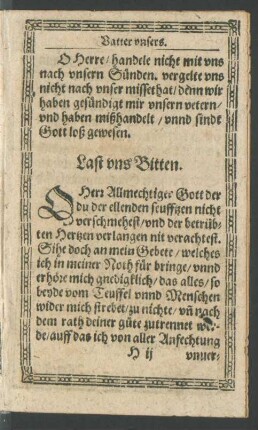 Vatter vnsers.
O Herre/ handele nicht mit vns
nach vnsern Sünden. vergelte vns
nicht nach vnser missethat/ denn wir
haben gesündigt mir vnsern vetern/
vnd haben mißhandelt/ vnnd sindt
Gott loß gewesen.
Last vns Bitten.
O Herr Allmechtiger Gott der
du der ellenden seufftzen nicht
verschmehest/ vnd der betrüb-
ten Hertzen verlangen nit verachtest.
Sihe doch an mein Gebete/ welches
ich in meiner Noth für bringe/ vnnd
erhöre mich gnediglich/ das alles/ so
beyde vom Teuffel vnnd Menschen
wider mich strebet/ zu nichte/ vñ nach
dem rath deiner güte zutrennet wer-
de/ auff das ich von aller Anfechtung
H ij vnuer-